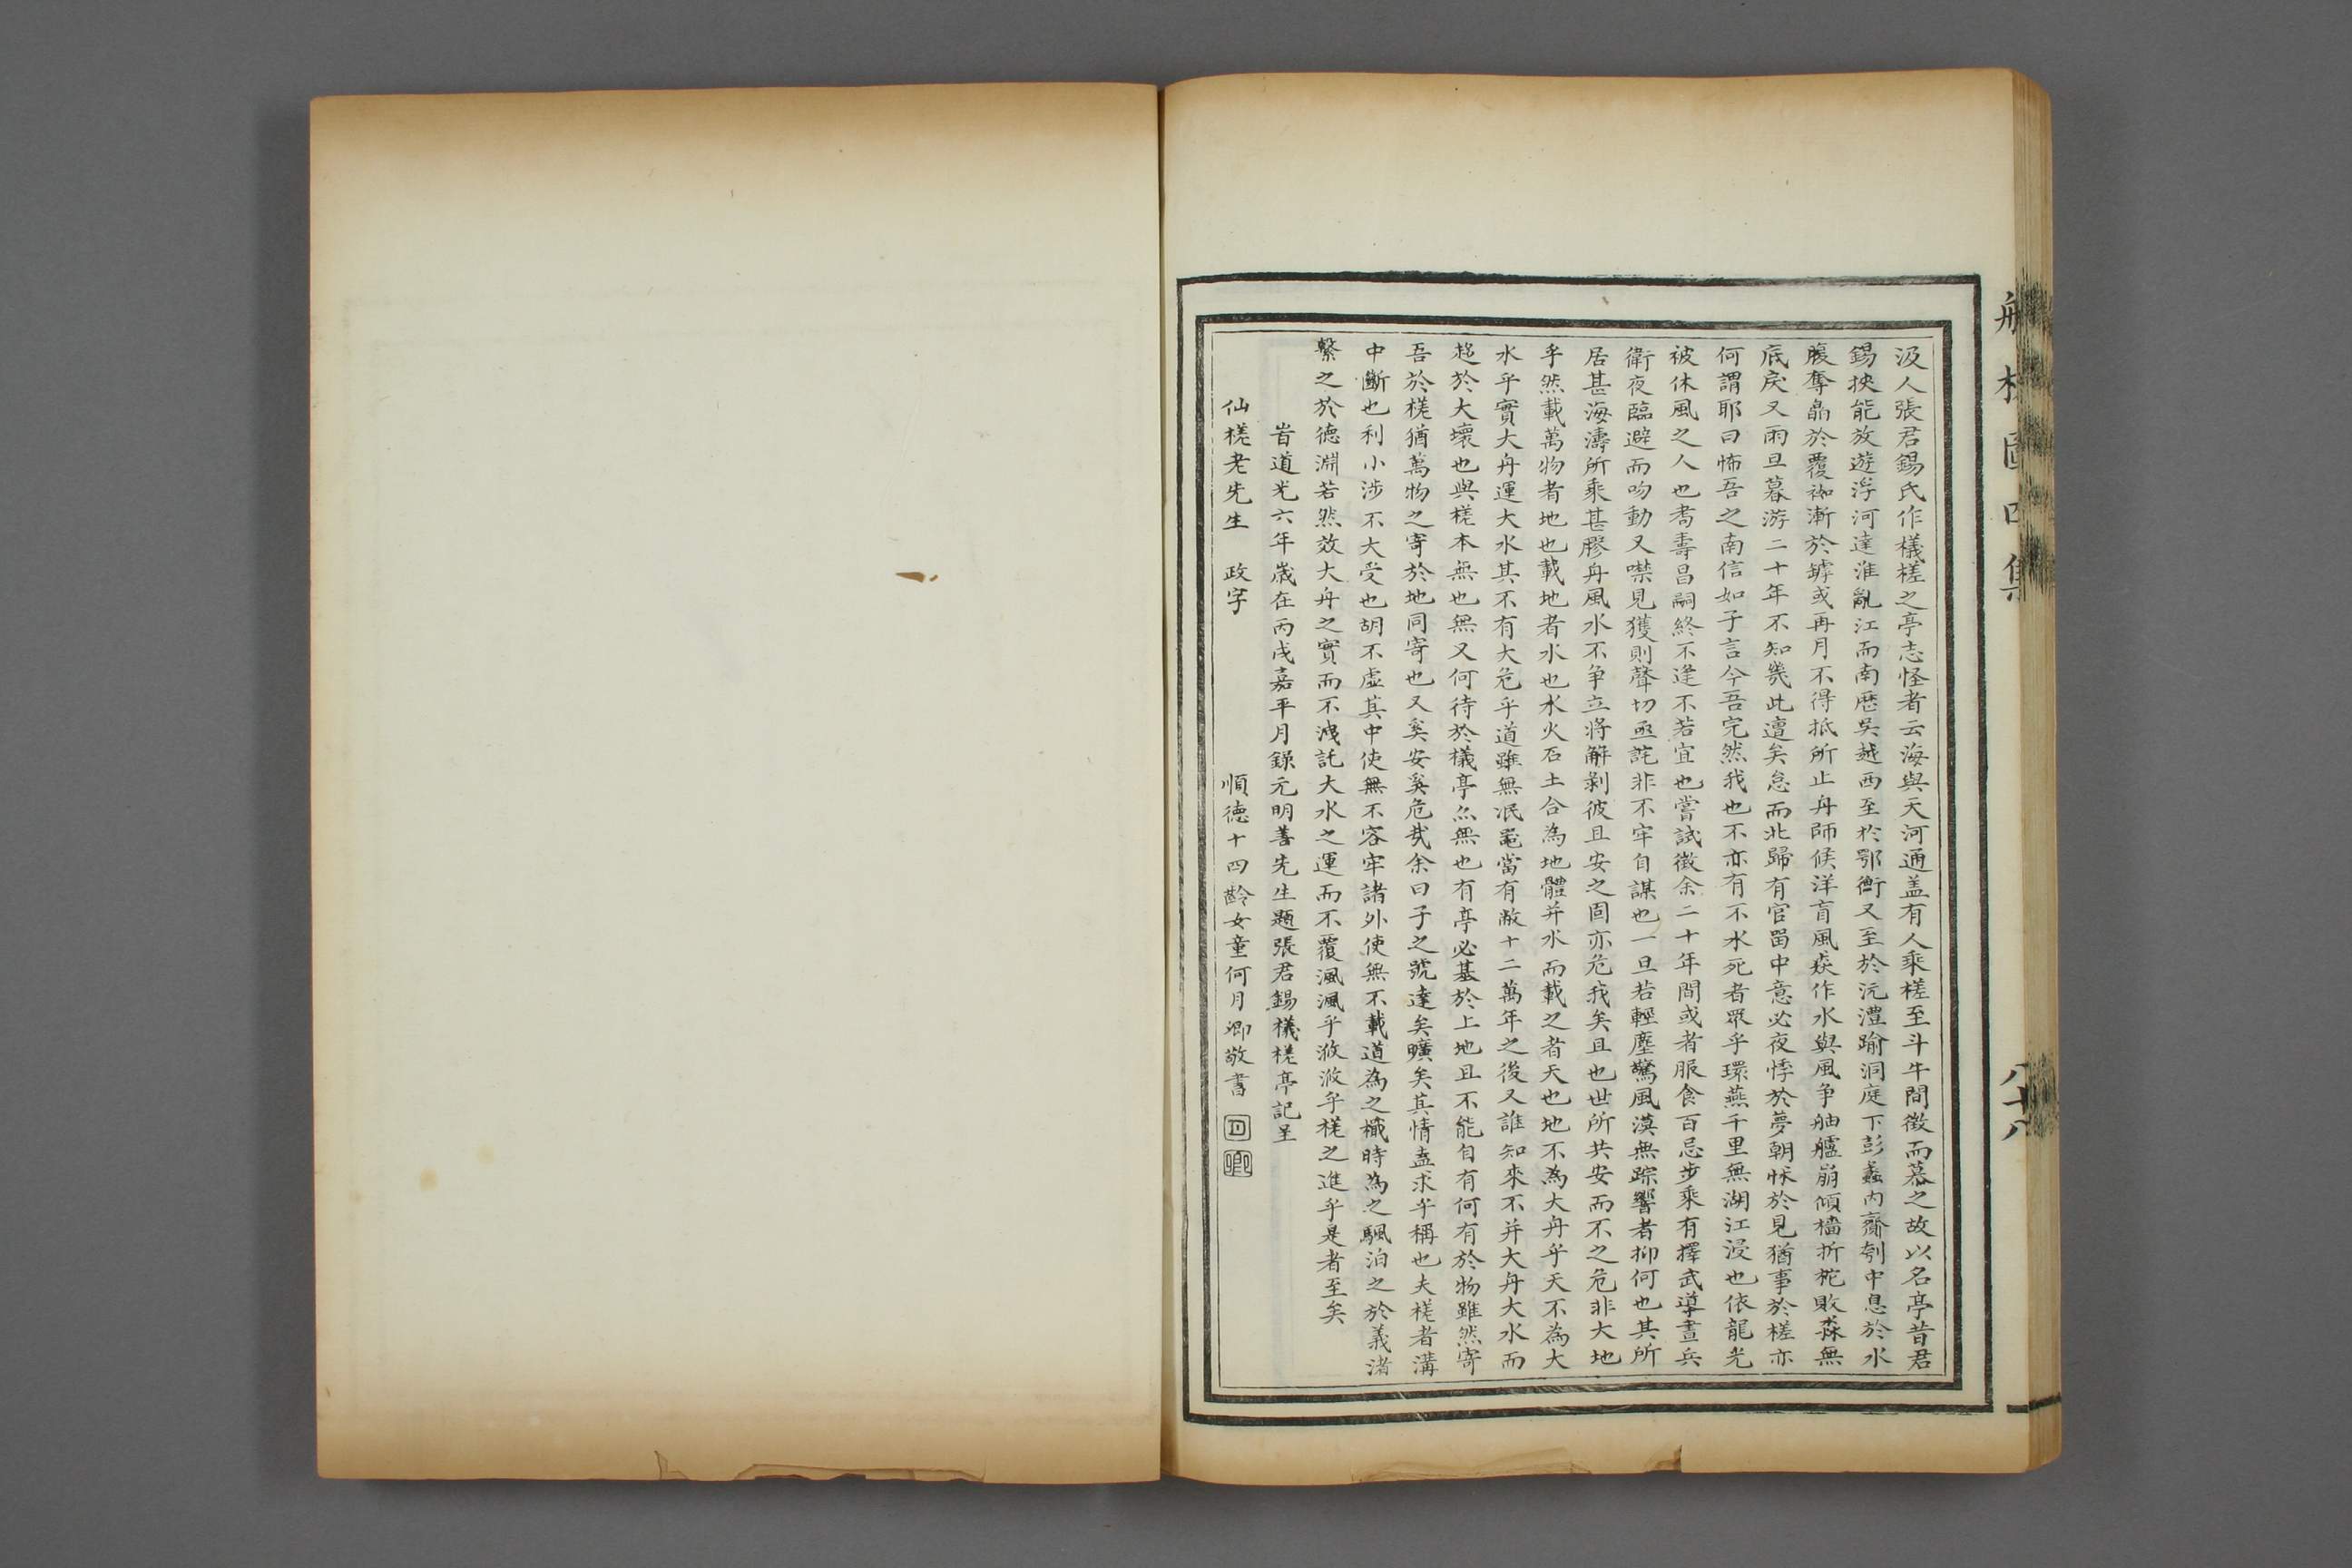 汲人張君錫氏作檥槎之亭志怪者云海與天河通盖有人乘槎至斗牛間徵而慕之故以名亭昔君
錫挾能放遊浮河達淮亂江而南歷吳越西至於鄂衡又至於沅澧踰洞庭下彭蠡內齋刳中息於水
腹奪晶於覆漸於罅或再月不得抵所止舟師候洋盲風猋作水與風争舳艫崩傾檣折柁敗淼無
底戾又雨旦暮游二十年不知幾此邅矣怠而北歸有官畱中意必夜悸於夢朝怵於見猶事於槎亦
何謂耶曰怖吾之南信如子言今吾完然我也不亦有不水死者眾乎環燕千里無湖江浸也依龍光
被休風之人也耇壽昌嗣終不逢不若宜也嘗試徵余二十年間或者服食百忌步乘有擇武導晝兵
衛夜臨避而吻動又噤見獲則聲切亟詫非不牢自謀也一旦若輕塵驚風漠無踪響者抑何也其所
居甚海濤所乘甚膠舟風水不争立將解剥彼且安之固亦危我矣且也世所共安而不之危非大地
乎然載萬物者地也載地者水也水火石土合為地體并水而載之者天也地不為大舟乎天不為大
水乎實大舟運大水其不有大危乎道雖無泯黿當有敝十二萬年之後又誰知來不并大舟大水而
趨於大壞也與槎本無也無又何待於檥亭亦無也有亭必基於上地且不能自有何有於物雖然寄
吾於槎猶萬物之寄於地同寄也又奚安奚危哉余曰子之號達矣曠矣其情盍求乎稱也夫槎者溝
中斷也利小涉不大受也胡不虛其中使無不容牢諸外使無不載道為之檝時為之颿泊之於義渚
繫之於德淵若然效大舟之實而不洩託大水之運而不覆渢渢乎浟浟乎槎之進乎是者至矣
旹道光六年歲在丙戌嘉平月錄元明善先生題張君錫檥槎亭記呈
仙槎老先生 政字 順德十四齡女童何月卿敬書 月卿
槎圖四集 八十八